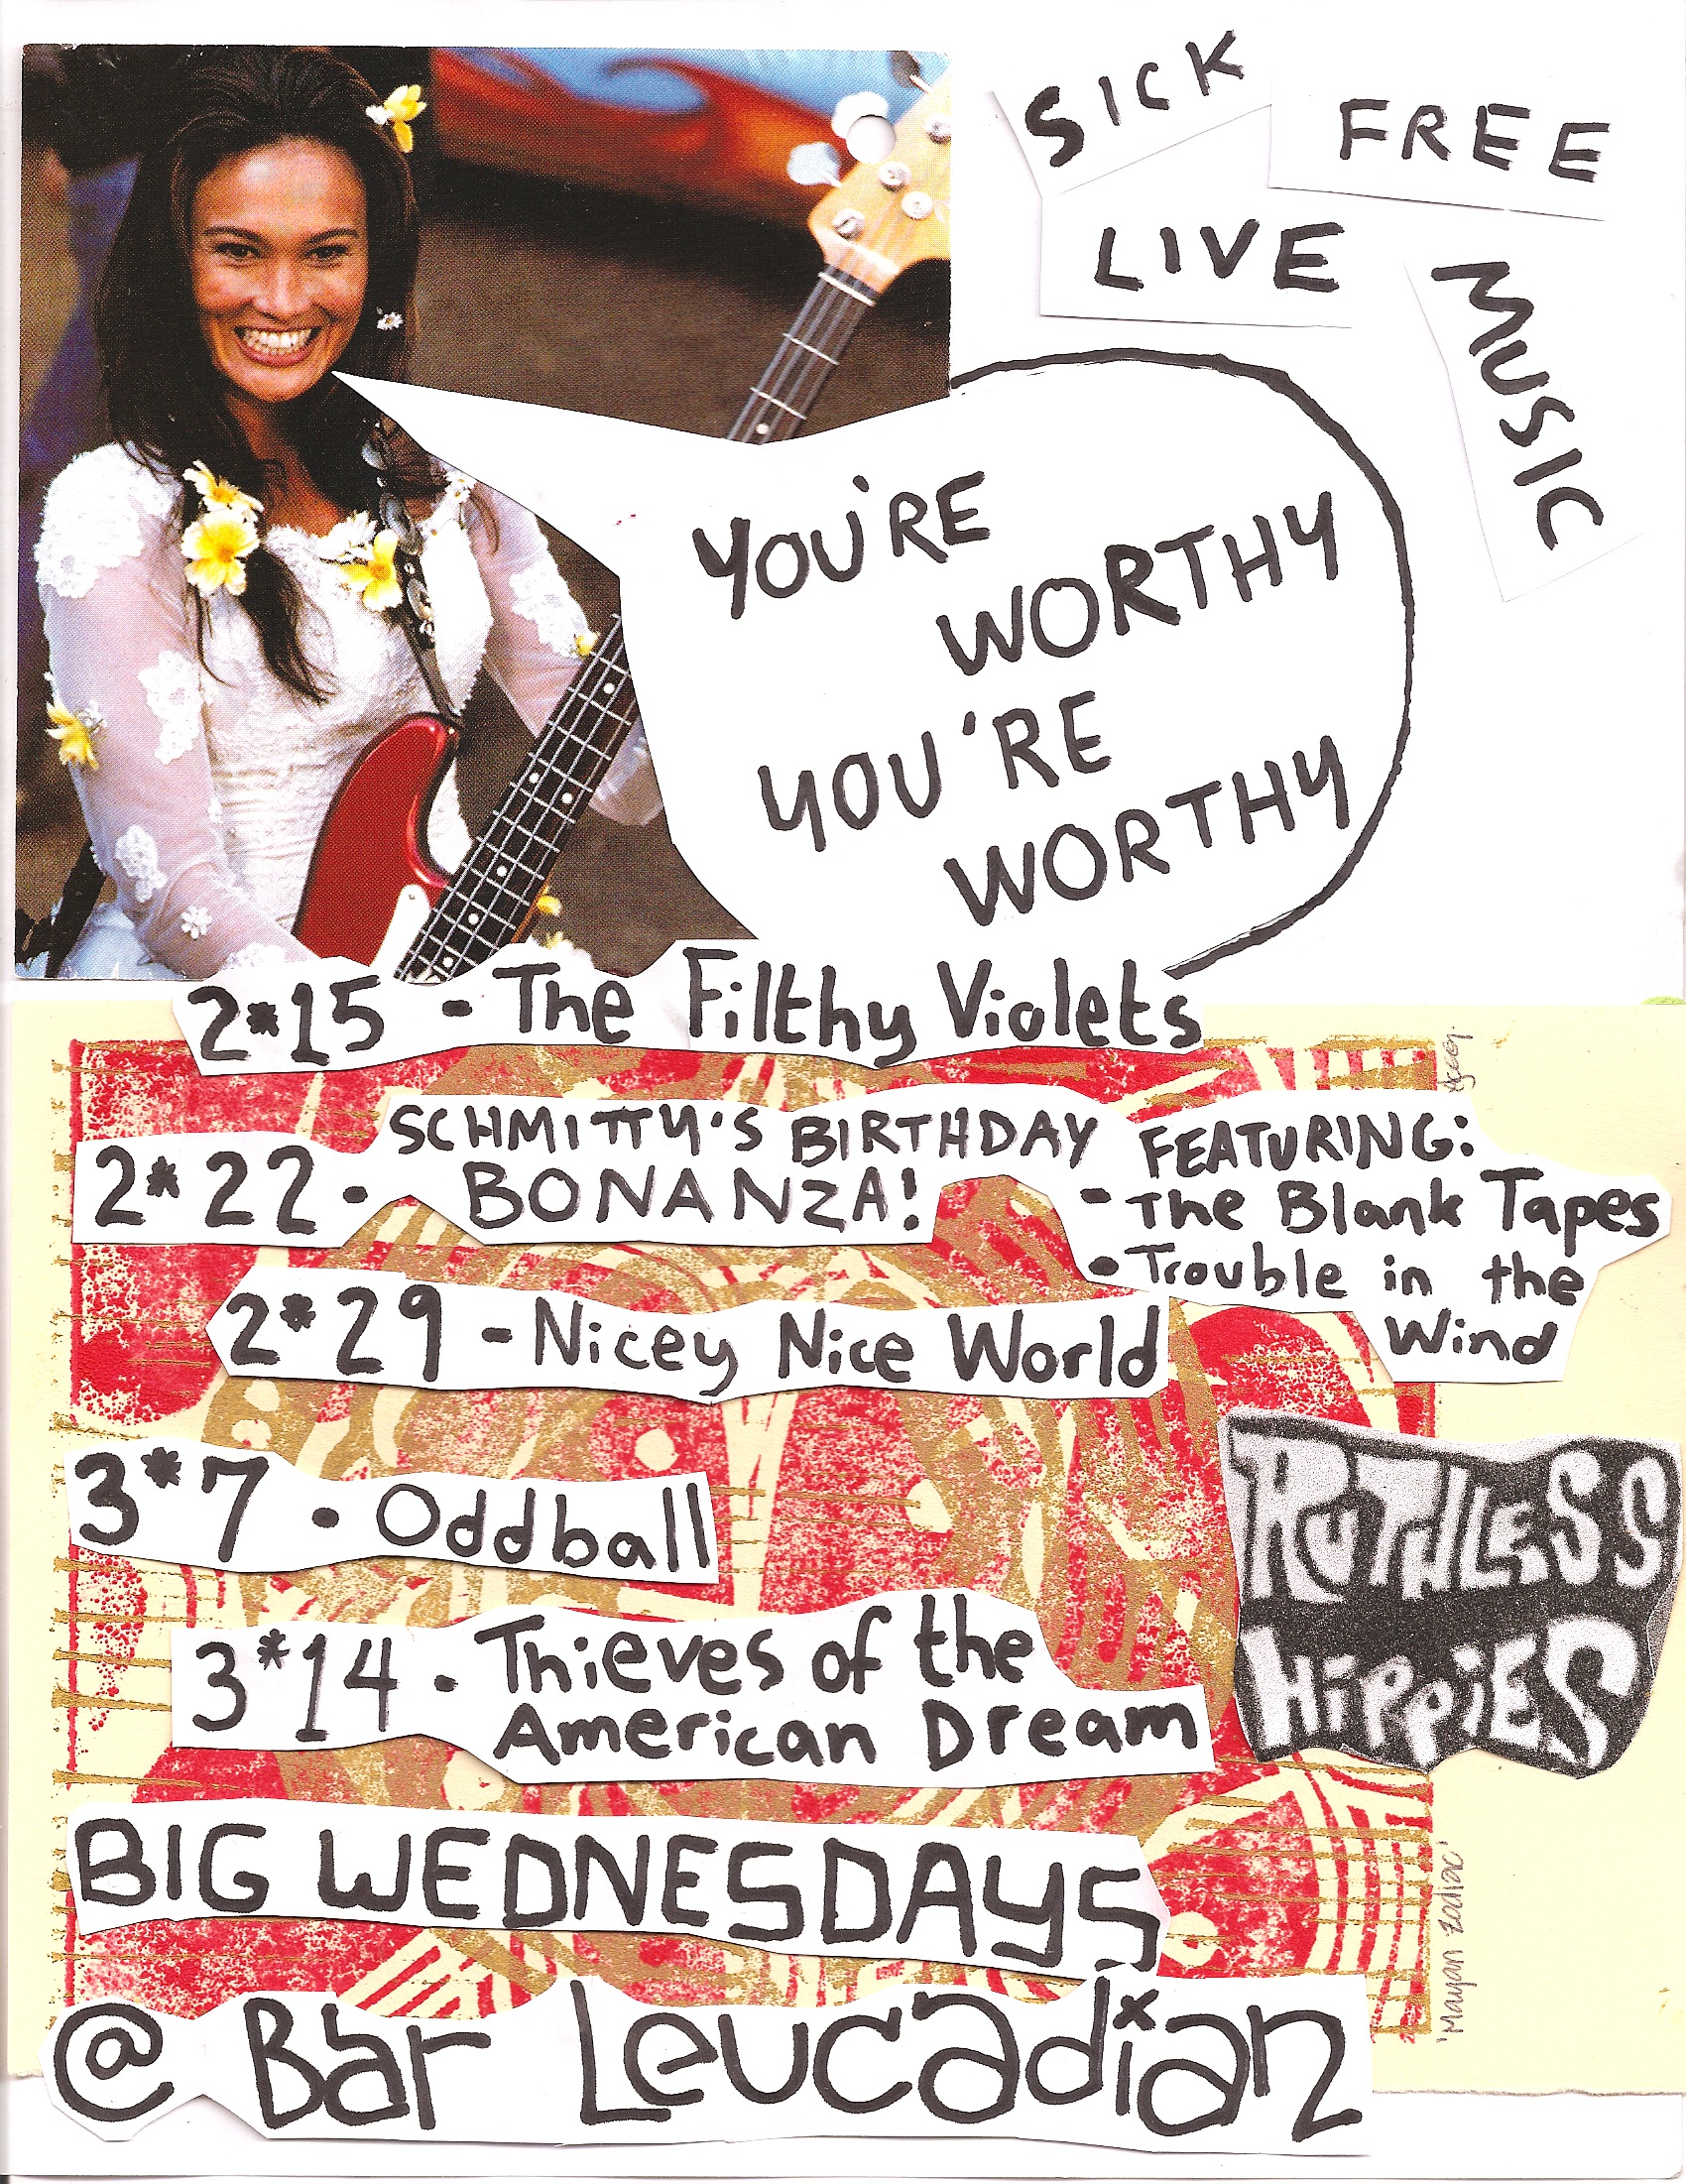 SICK
FREE
LIVE
MUSIC
YOU'RE
WORTHY
YOU'RE
WORTHY
2*15 - The Filthy Violets
2*22 - SCHMITTY'S BIRTHDAY
BONANZA!
FEATURING:
- The Blank Tapes
• Trouble in the
Wind
2*29 - Nicey Nice World
3*7 • Oddball
RUTHLESS
HIPPIES
3*14 • Thieves of the
American Dream
BIG WEDNESDAYS
@ Bar Leucadian
'Mayan Zodiac'